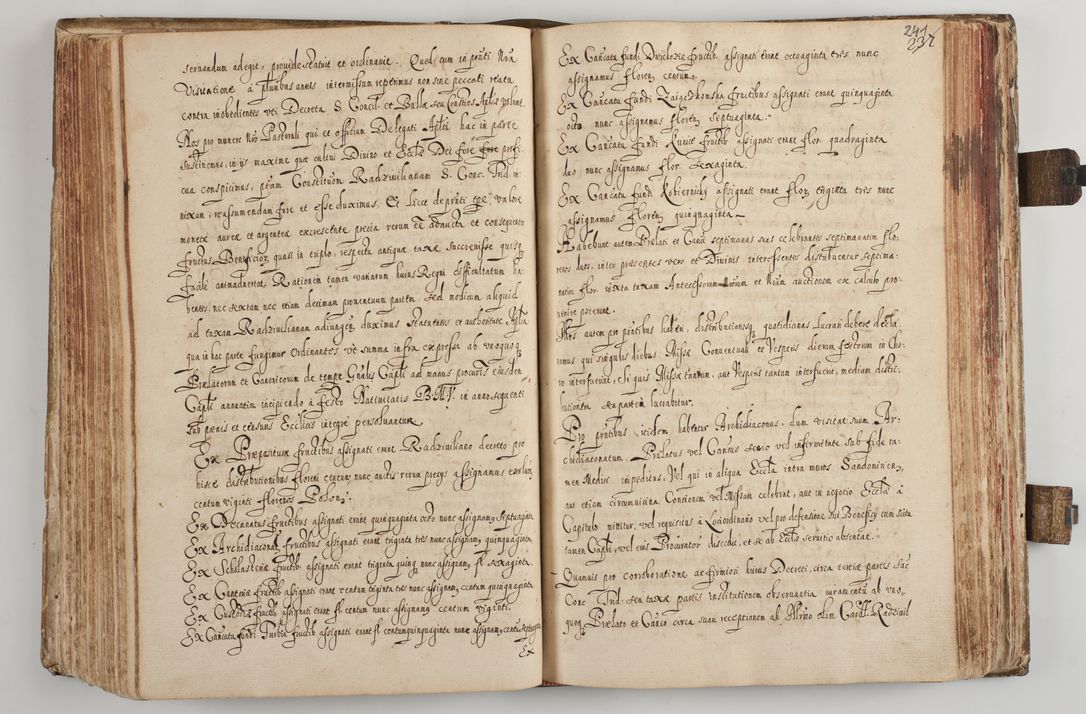 servandum adegit, provide statuit et ordinavit. Quod cum in pñti Nrã
Visitatione à pluribus annis intermissum reperimus non sine peccati reatu
contra inobedientes uti Decreta S. Concil. et Bullæ seu Constites Aplicæ volunt.
Nos pro munere Nrõ Pastorali qui et officium Delegati Aplici hac in parte
sustinemus, in ijs maxime quæ cultui Divino et Ecclæ Dei fore profi
cua conspicimus, ptam Constitutiõn Radzivilianam S. Conc. Trid. in
nixam, reassumendam fore et esse duximus. Et licet de pñti valore
monetæ aureæ et argenteæ excrescente precia rerum et consequenter
fructus Beneficior quasi in triplo respectu antiquæ taxæ succrevisse quisq
facile animadvertat, Rationem tamen variarum huius Regni difficultatum ha
bentes, nec sextam nec etiam decimam proventuum partem, sed modicum aliquid
ad taxam Radzivilianam adiungen duximus statuentes et authoritate Aplica
qua in hac parte fungimur Ordinantes ut summa infra expressa ab unoquoq
Prælatorum et Canonicorum de tempe Gnalis Capli ad manus procuris eiusdem
Capli annuatim incipiendo à festo Nativitatis B.M.V. in anno sequenti
sub pœnis et censuris Ecclicis integre persolvantur.
Ex Præpositum fructibus assignati erant Radziviliano decreto pro
hisce distributionibus floreni centum nunc auctis rerum precys assignamus
centum viginti florenos Polon.
Ex Decanatus fructibus assignati erant quinquaginta octo nunc assignam septuaginta
Ex Archidiaconat fructibus assignati erant triginta tres nunc assignam quinquaginta
Ex Scholasteriæ fructib assignati erant triginta quinq nunc assignam fl sexaginta.
Ex Cantoriæ fructib assignati erant centum triginta tres nunc assignam centum quinquaginta
Ex Custodiæ fructib assignati erant fl centum nunc assignamg centum viginti.
Ex Cancatu fundi fructib assignati erant fl centumquinquaginta nunc assignam centu septuaginta
Ex
241
237
Ex Cancatu fundi Dwikozie fructib assignati erant octuaginta tres nunc
assignamus floren centum.
Ex Cancatu fundi Zaigczkonska fructibus assignati erant quinquaginta
octo nunc assignamus florens septuaginta.
Ex Cancatu fundi Kunice fructib assignati erant flor. quadraginta
duo nunc assignamus flor. sexaginta.
Ex Cancatu fundi Kobiernicky assignati erant flor triginta tres nunc
assignamus floren quinquaginta
Habebunt autem Prælati et Canci septimanas suas celebrantes septimanatim flo
renos duos, inter præsentes vero et Divinis interessentes distribuentur septima
natim flor. iuxta taxam Antecessorum Nrorum et Nram auctionem ex calculo pro
venire poterunt.
Illos autem pro pñtibus haberi, distributionesq quotidianas lucrari debere decla
ramus qui singulis diebus Missæ Conventuali et Vesperis dierum festorum in Cho
ro interfuerint, Si quis Missæ tantum, aut Vesperis tantum interfuerit, mediam distri
butionem seu partem lucrabitur.
Pro pñtibus itidem habentur Archidiaconus, dum visitat suum Ar
chidiaconatum, Prælatus vel Cancus senio vel infirmitate sub fide ta
men Medici impeditus, Vel qui in aliqua Eccla intra muros Sandomirien,
aut etiam circumvicina Concionem vel Missam celebrat, aut in negotio Ecclæ à
Capitulo mittitur, vel requisitus à Locordinario vel pro defensione sui Beneficy cum scitu
tamen Capli, vel eius Procurator discedit, et se ab Ecclæ servitio absentat.
Quamuis pro corroboratione ac firmiori huius Decreti, circa tertiæ partis Sac
Conc Trid. seu taxæ partis institutionem observantia iuramenti ab uno
quoq Prælato et Canco circa suam receptionem ab Illrmo olim Cardli Radzivil